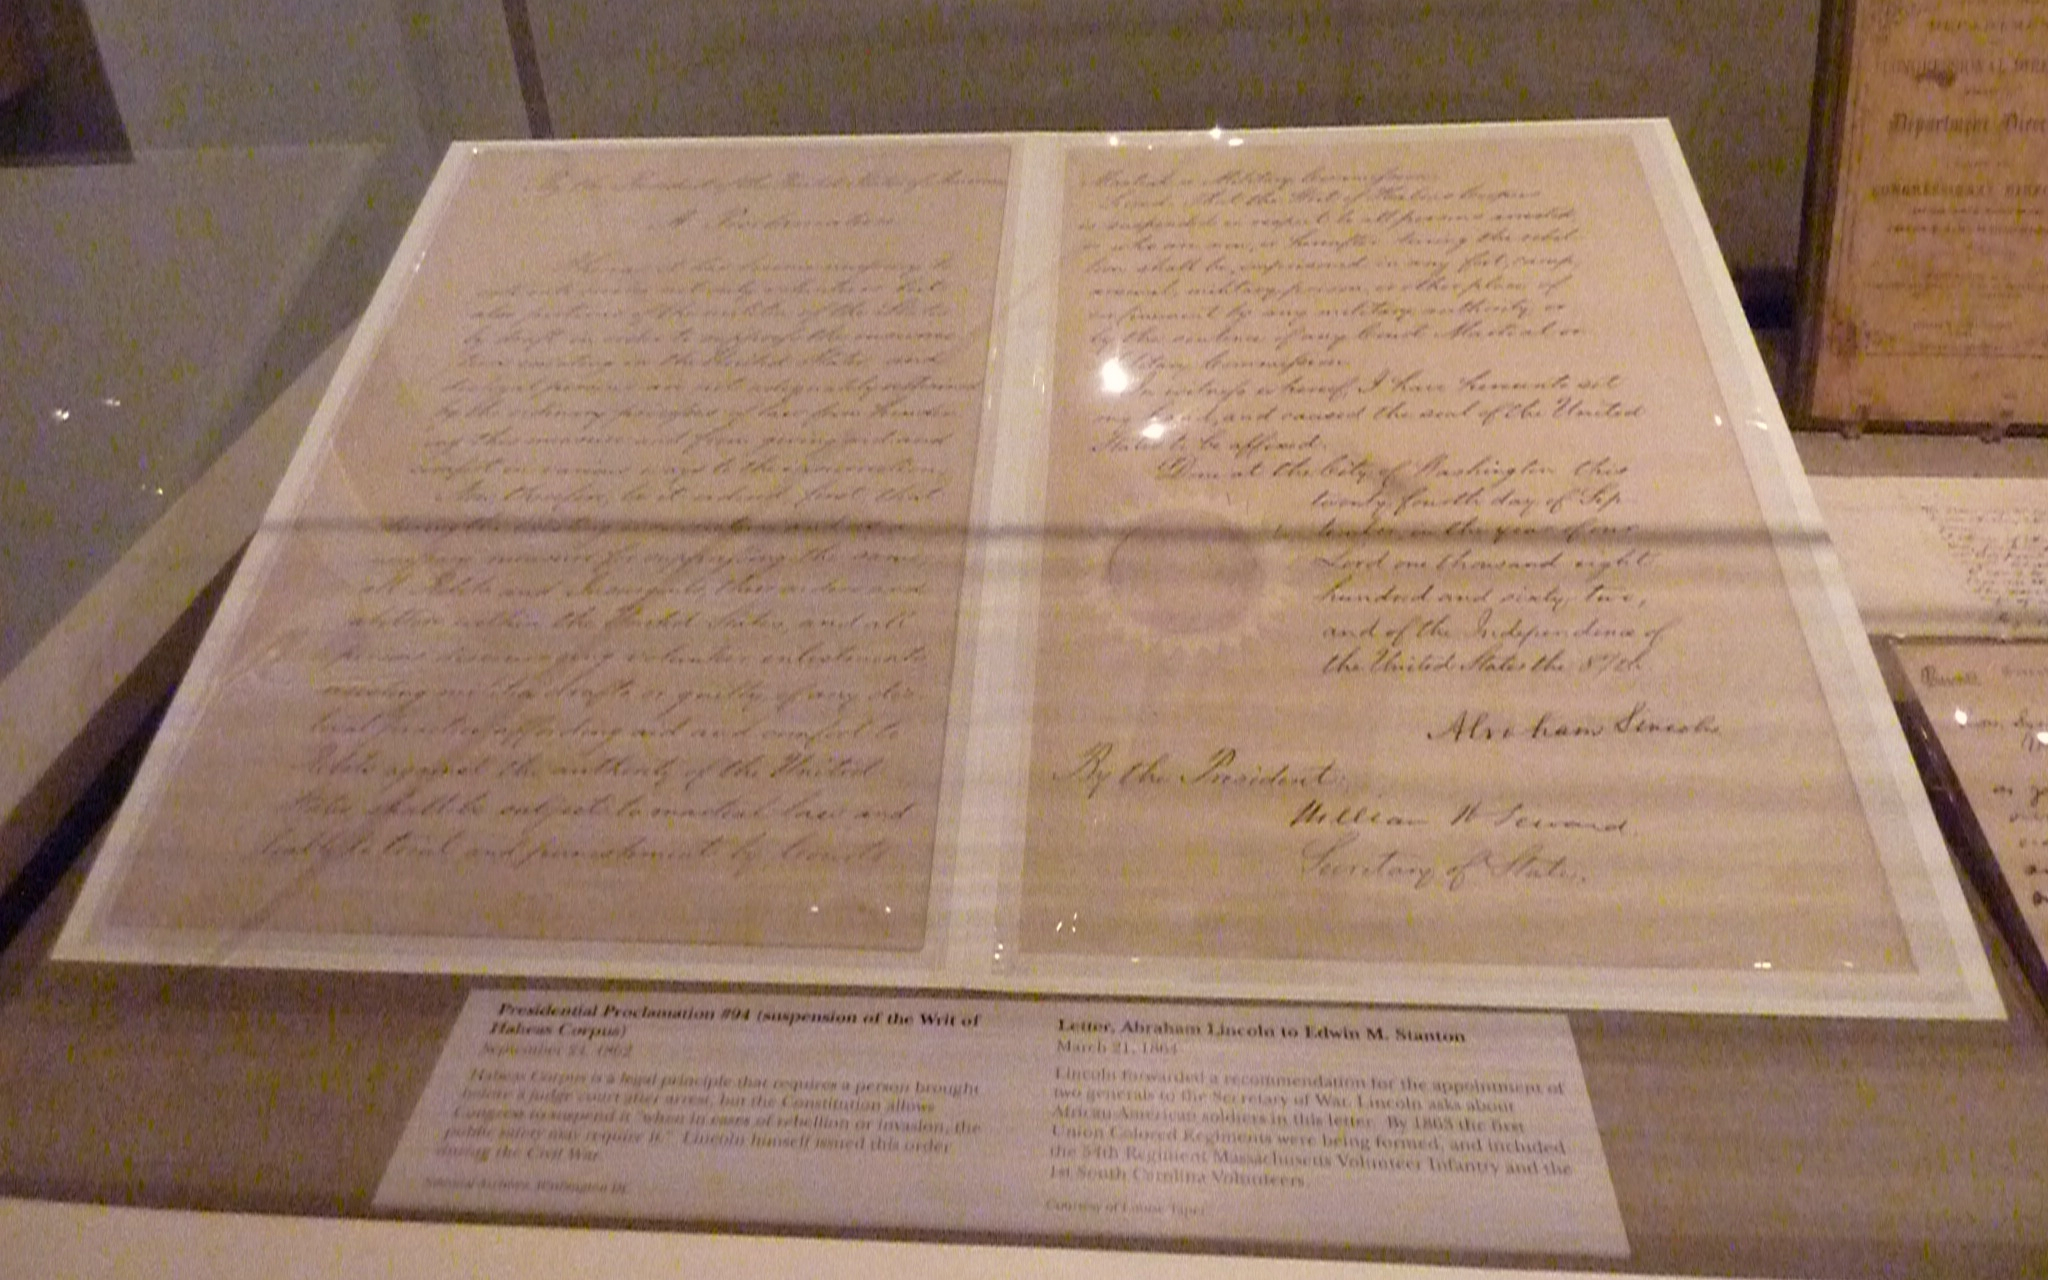 By the President of the United States of America
A Proclamation
Whereas, it has become necessary to
call into service not only volunteers but
also portions of the militia of the States
by draft in order to suppress the insurrec-
tion existing in the United States, and
disloyal persons are not adequately restrained
by the ordinary processes of law from hinder-
ing this measure and from giving aid and
comfort in various ways to the insurrection;
Now, therefore, be it ordered, first, that
during the existing insurrection and as a
necessary measure for suppressing the same,
all Rebels and Insurgents, their aiders and
abettors within the United States, and all
persons discouraging volunteer enlistments,
resisting militia drafts, or guilty of any dis-
loyal practice, affording aid and comfort to
Rebels against the authority of the United
States, shall be subject to martial law and
liable to trial and punishment by Courts
Martial or Military Commission:
Second. That the Writ of Habeas Corpus
is suspended in respect to all persons arrested,
or who are now, or hereafter during the rebel-
lion shall be, imprisoned in any fort, camp,
arsenal, military prison, or other place of
confinement by any military authority or
by the sentence of any Court Martial or
Military Commission.
In witness whereof, I have hereunto set
my hand, and caused the seal of the United
States to be affixed.
Done at the City of Washington this
twenty fourth day of Sep-
tember, in the year of our
Lord one thousand eight
hundred and sixty two,
and of the Independence of
the United States the 87th.
Abraham Lincoln
By the President:
William H Seward
Secretary of State.
Presidential Proclamation #94 (suspension of the Writ of
Habeas Corpus)
September 24, 1862
Habeas Corpus is a legal principle that requires a person brought
before a judge court after arrest, but the Constitution allows
Congress to suspend it "when in cases of rebellion or invasion, the
public safety may require it." Lincoln himself issued this order
during the Civil War.
National Archives, Washington DC
Letter, Abraham Lincoln to Edwin M. Stanton
March 21, 1864
Lincoln forwarded a recommendation for the appointment of
two generals to the Secretary of War. Lincoln asks about
African American soldiers in this letter. By 1863 the first
Union Colored Regiments were being formed, and included
the 54th Regiment Massachusetts Volunteer Infantry and the
1st South Carolina Volunteers.
Courtesy of Louise Taper
Department Direc